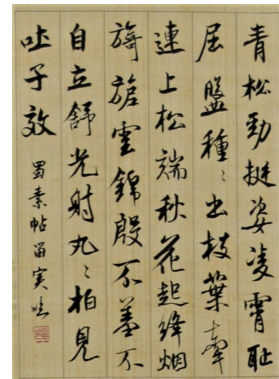 青松勁挺姿凌霄恥
屈盤種〻出枝葉牽
連上松端秋花起絳烟
旖旎雲錦殷不羞不
自立舒光射丸〻柏見
吐子效
蜀素帖